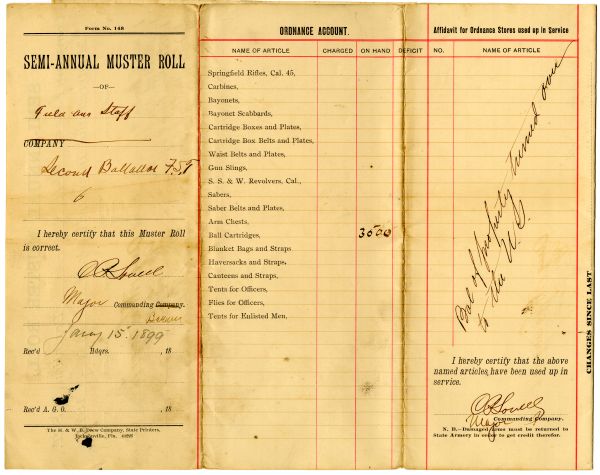 Form No. 148
SEMI-ANNUAL MUSTER ROLL
—OF—
Field and Staff
COMPANY
Second Battalion F.S.T
6
I hereby certify that this Muster Roll
is correct.
Major Commanding Company.
Jany 15. 1899
Rec'd Hdqrs. , 18
Rec'd A. G. O. , 18
The H. & W. B. Drew Company, State Printers,
Jacksonville, Fla.
ORDNANCE ACCOUNT.
NAME OF ARTICLE CHARGED ON HAND DEFICIT
Springfield Rifles, Cal. 45,
Carbines,
Bayonets,
Bayonet Scabbards,
Cartridge Boxes and Plates,
Cartridge Box Belts and Plates,
Waist Belts and Plates,
Gun Slings,
S. S. & W. Revolvers, Cal.,
Sabers,
Saber Belts and Plates,
Arm Chests,
Ball Cartridges, 3500
Blanket Bags and Straps
Haversacks and Straps,
Canteens and Straps,
Tents for Officers,
Flies for Officers,
Tents for Enlisted Men,
Affidavit for Ordnance Stores used up in Service
NO. NAME OF ARTICLE
Bal of property turned over
to the U.S.
I hereby certify that the above
named articles have been used up in
service.
Commanding Company.
Major
N. B.—Damaged Arms must be returned to
State Armory in order to get credit therefor.
CHANGES SINCE LAST